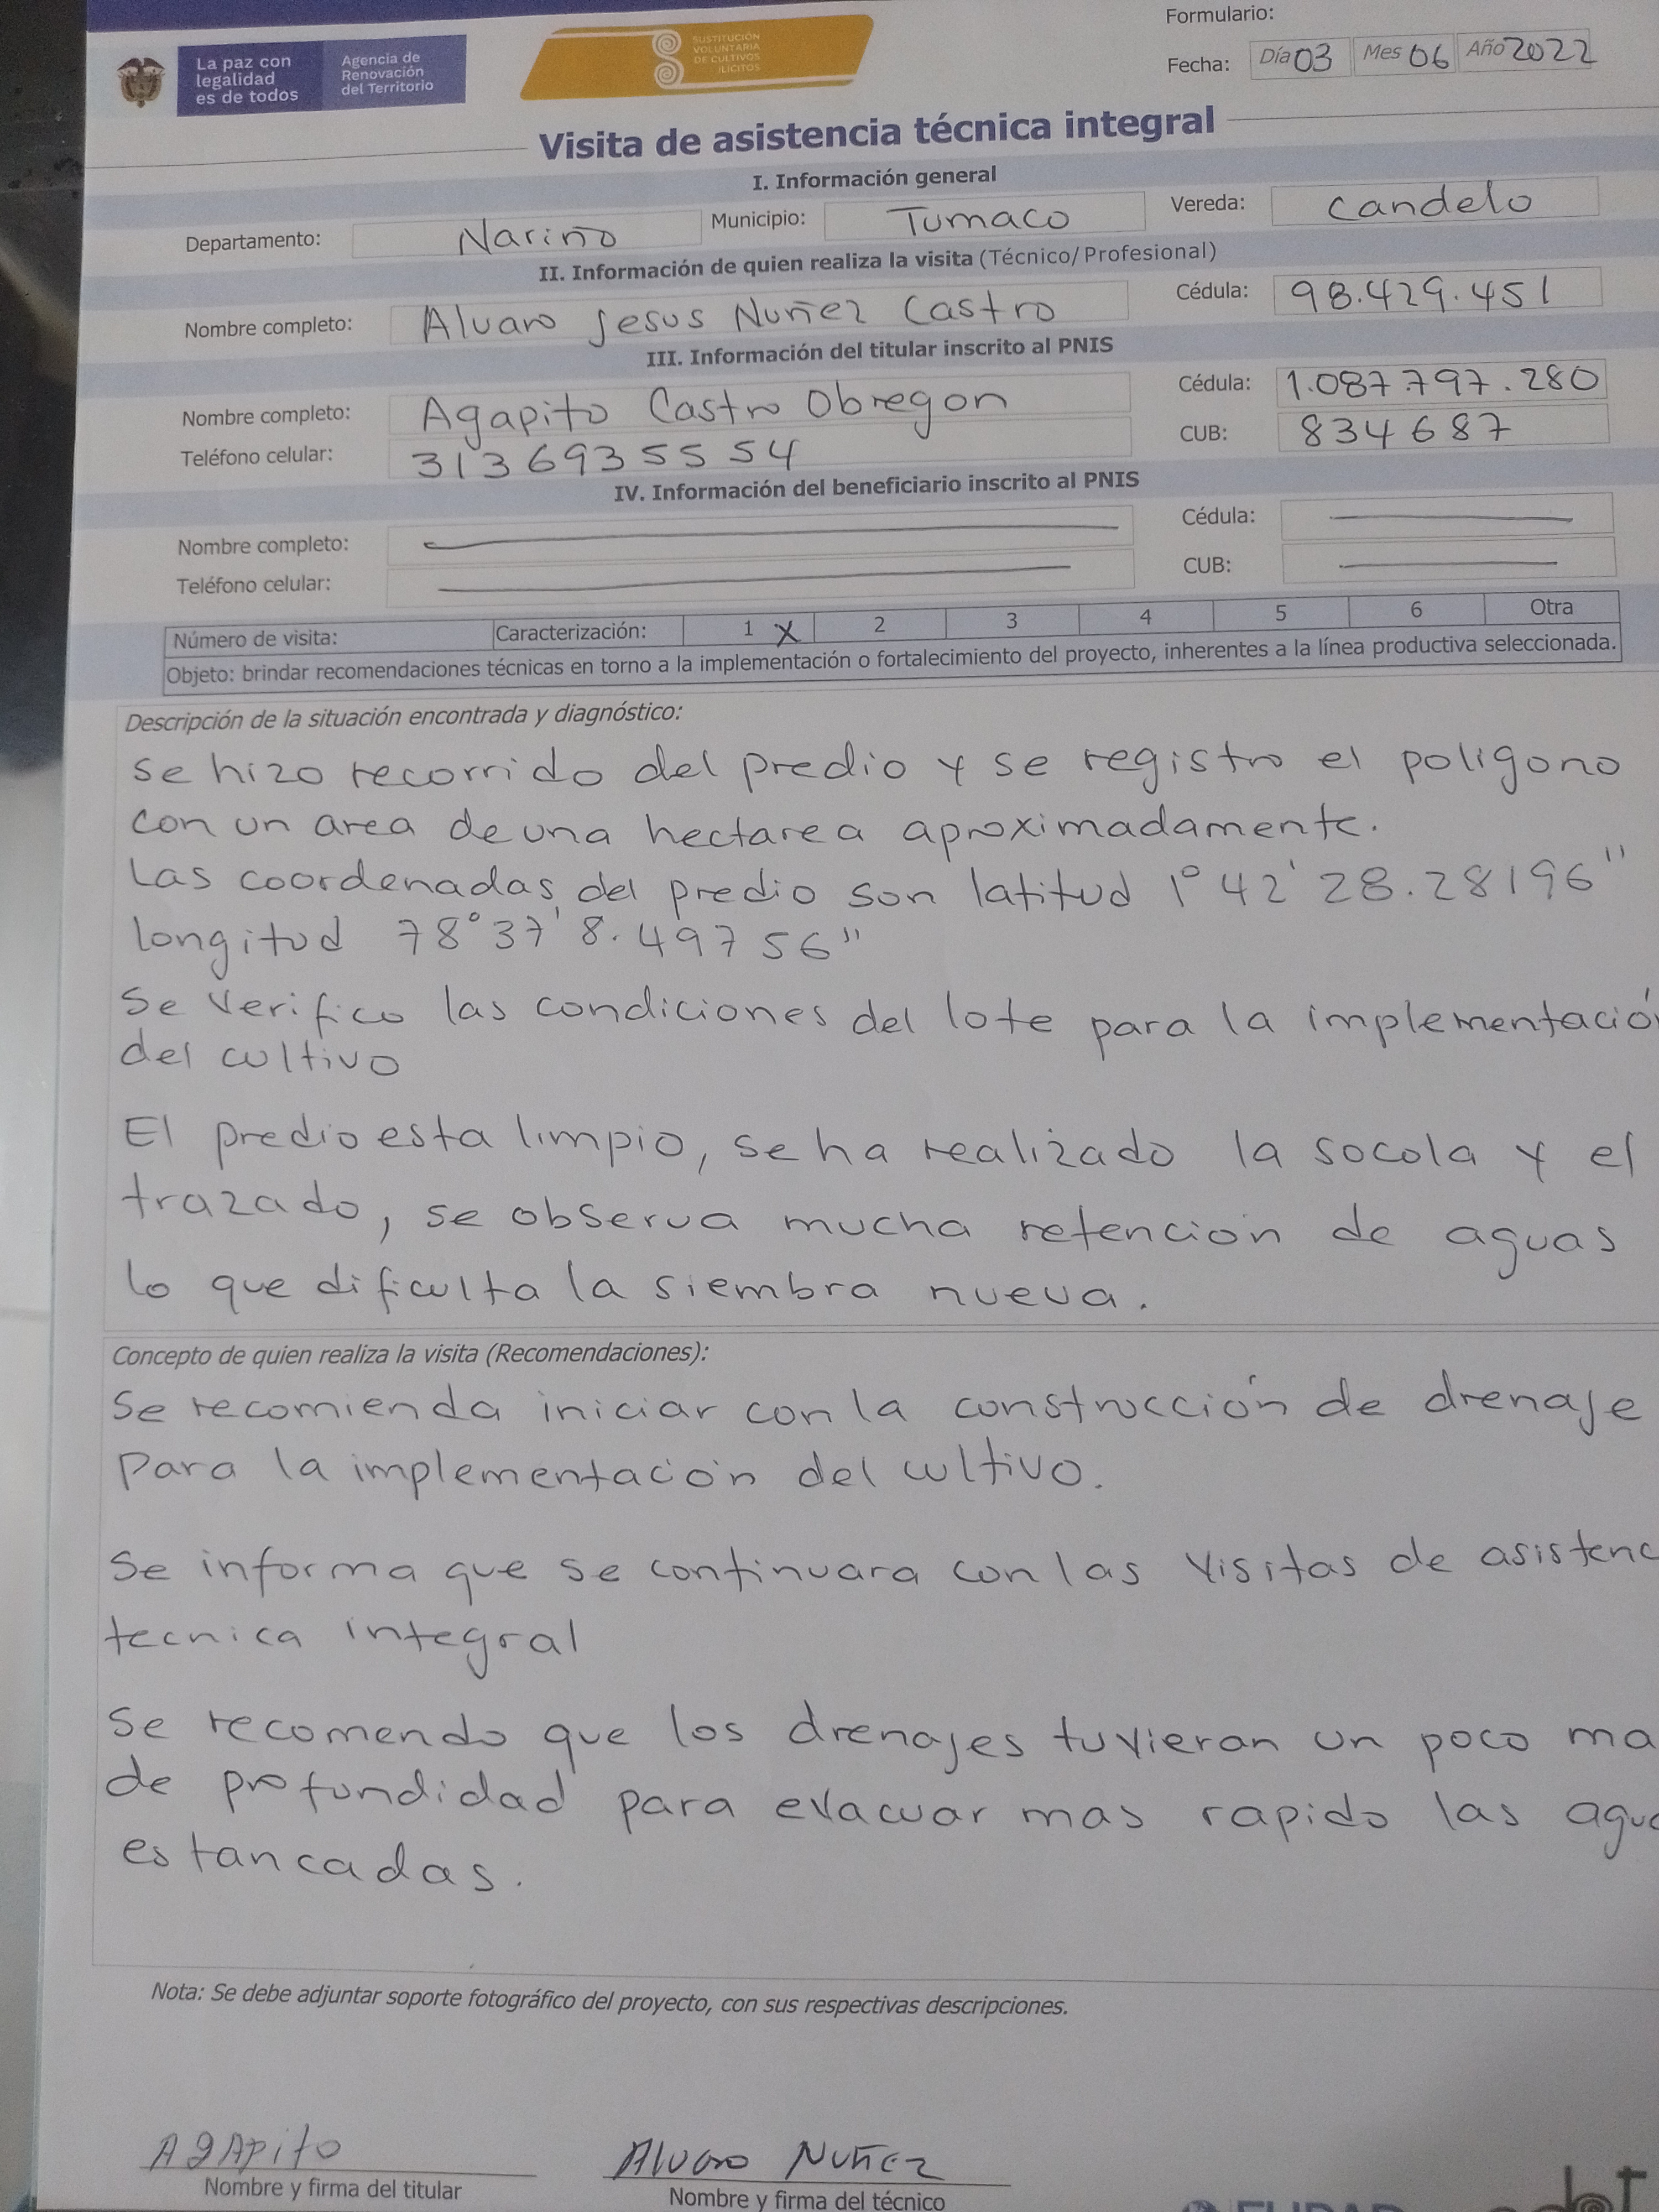 Formulario:
La paz con
legalidad
es de todos
Agencia de
Renovación
del Territorio
SUSTITUCIÓN
VOLUNTARIA
DE CULTIVOS
ILÍCITOS
Fecha: Día 03 Mes 06 Año 2022
Visita de asistencia técnica integral
I. Información general
Departamento: Nariño Municipio: Tumaco Vereda: Candelo
II. Información de quien realiza la visita (Técnico/Profesional)
Nombre completo: Alvaro Jesus Nuñez Castro Cédula: 98.429.451
III. Información del titular inscrito al PNIS
Nombre completo: Agapito Castro Obregon Cédula: 1.087.797.280
Teléfono celular: 3136935554 CUB: 834687
IV. Información del beneficiario inscrito al PNIS
Nombre completo: Cédula:
Teléfono celular: CUB:
Número de visita: Caracterización: 1 X 2 3 4 5 6 Otra
Objeto: brindar recomendaciones técnicas en torno a la implementación o fortalecimiento del proyecto, inherentes a la línea productiva seleccionada.
Descripción de la situación encontrada y diagnóstico:
se hizo recorrido del predio y se registro el poligono
con un area de una hectarea aproximadamente.
Las coordenadas del predio son latitud 1° 42' 28.28196"
longitud 78° 37' 8.49756"
Se verifico las condiciones del lote para la implementació
del cultivo
El predio esta limpio, se ha realizado la socola y el
trazado, se observa mucha retención de aguas
lo que dificulta la siembra nueva.
Concepto de quien realiza la visita (Recomendaciones):
Se recomienda iniciar con la construcción de drenaje
para la implementación del cultivo.
Se informa que se continuara con las visitas de asistenc
tecnica integral
Se recomendo que los drenajes tuvieran un poco ma
de profundidad para evacuar mas rapido las agua
estancadas.
Nota: Se debe adjuntar soporte fotográfico del proyecto, con sus respectivas descripciones.
AgApito Alvaro Nuñez
Nombre y firma del titular Nombre y firma del técnico